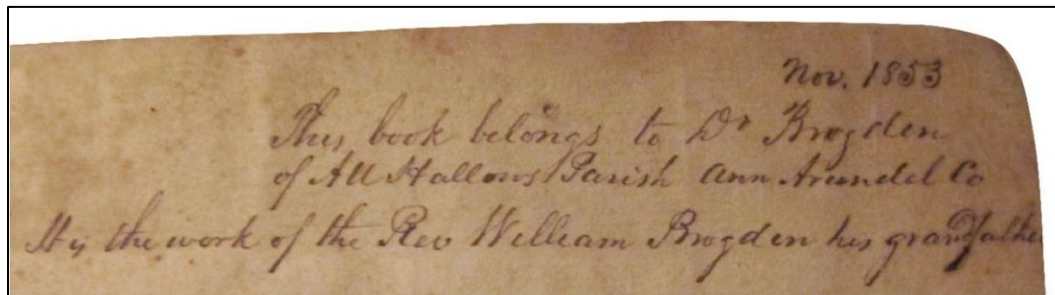 Nov. 1853
This book belongs to Dr Brogden
of All Hallows Parish Ann Arundel Co
It is the work of the Rev William Brogden his grandfather